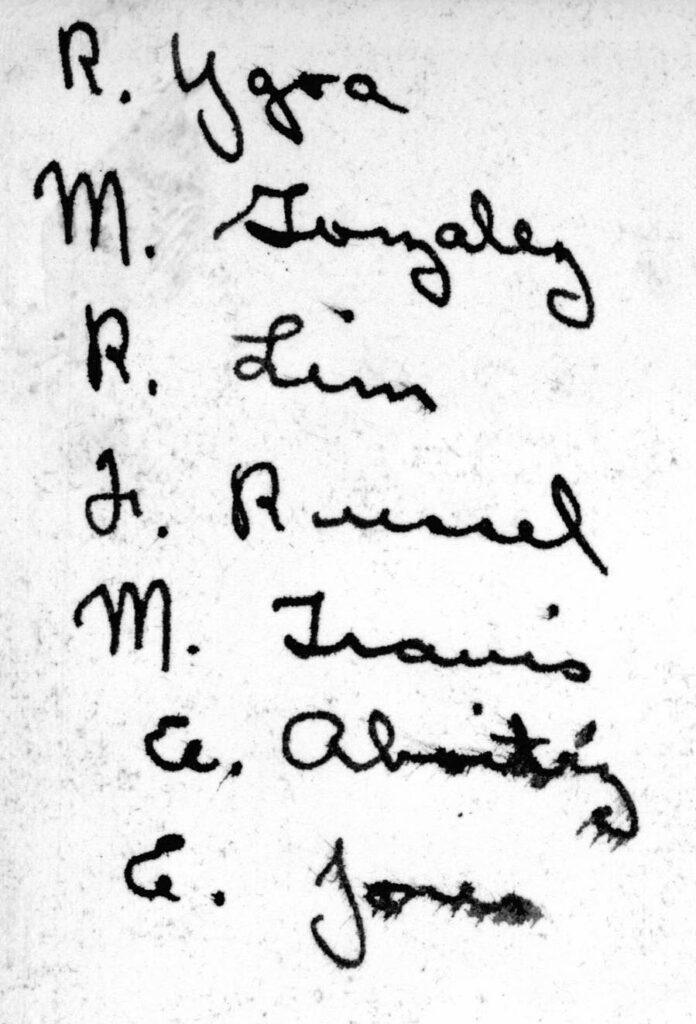 R. Ygoa
M. Gonzalez
R. Lim
F. Russel
M. Travis
E. Aboitiz
E. Jones